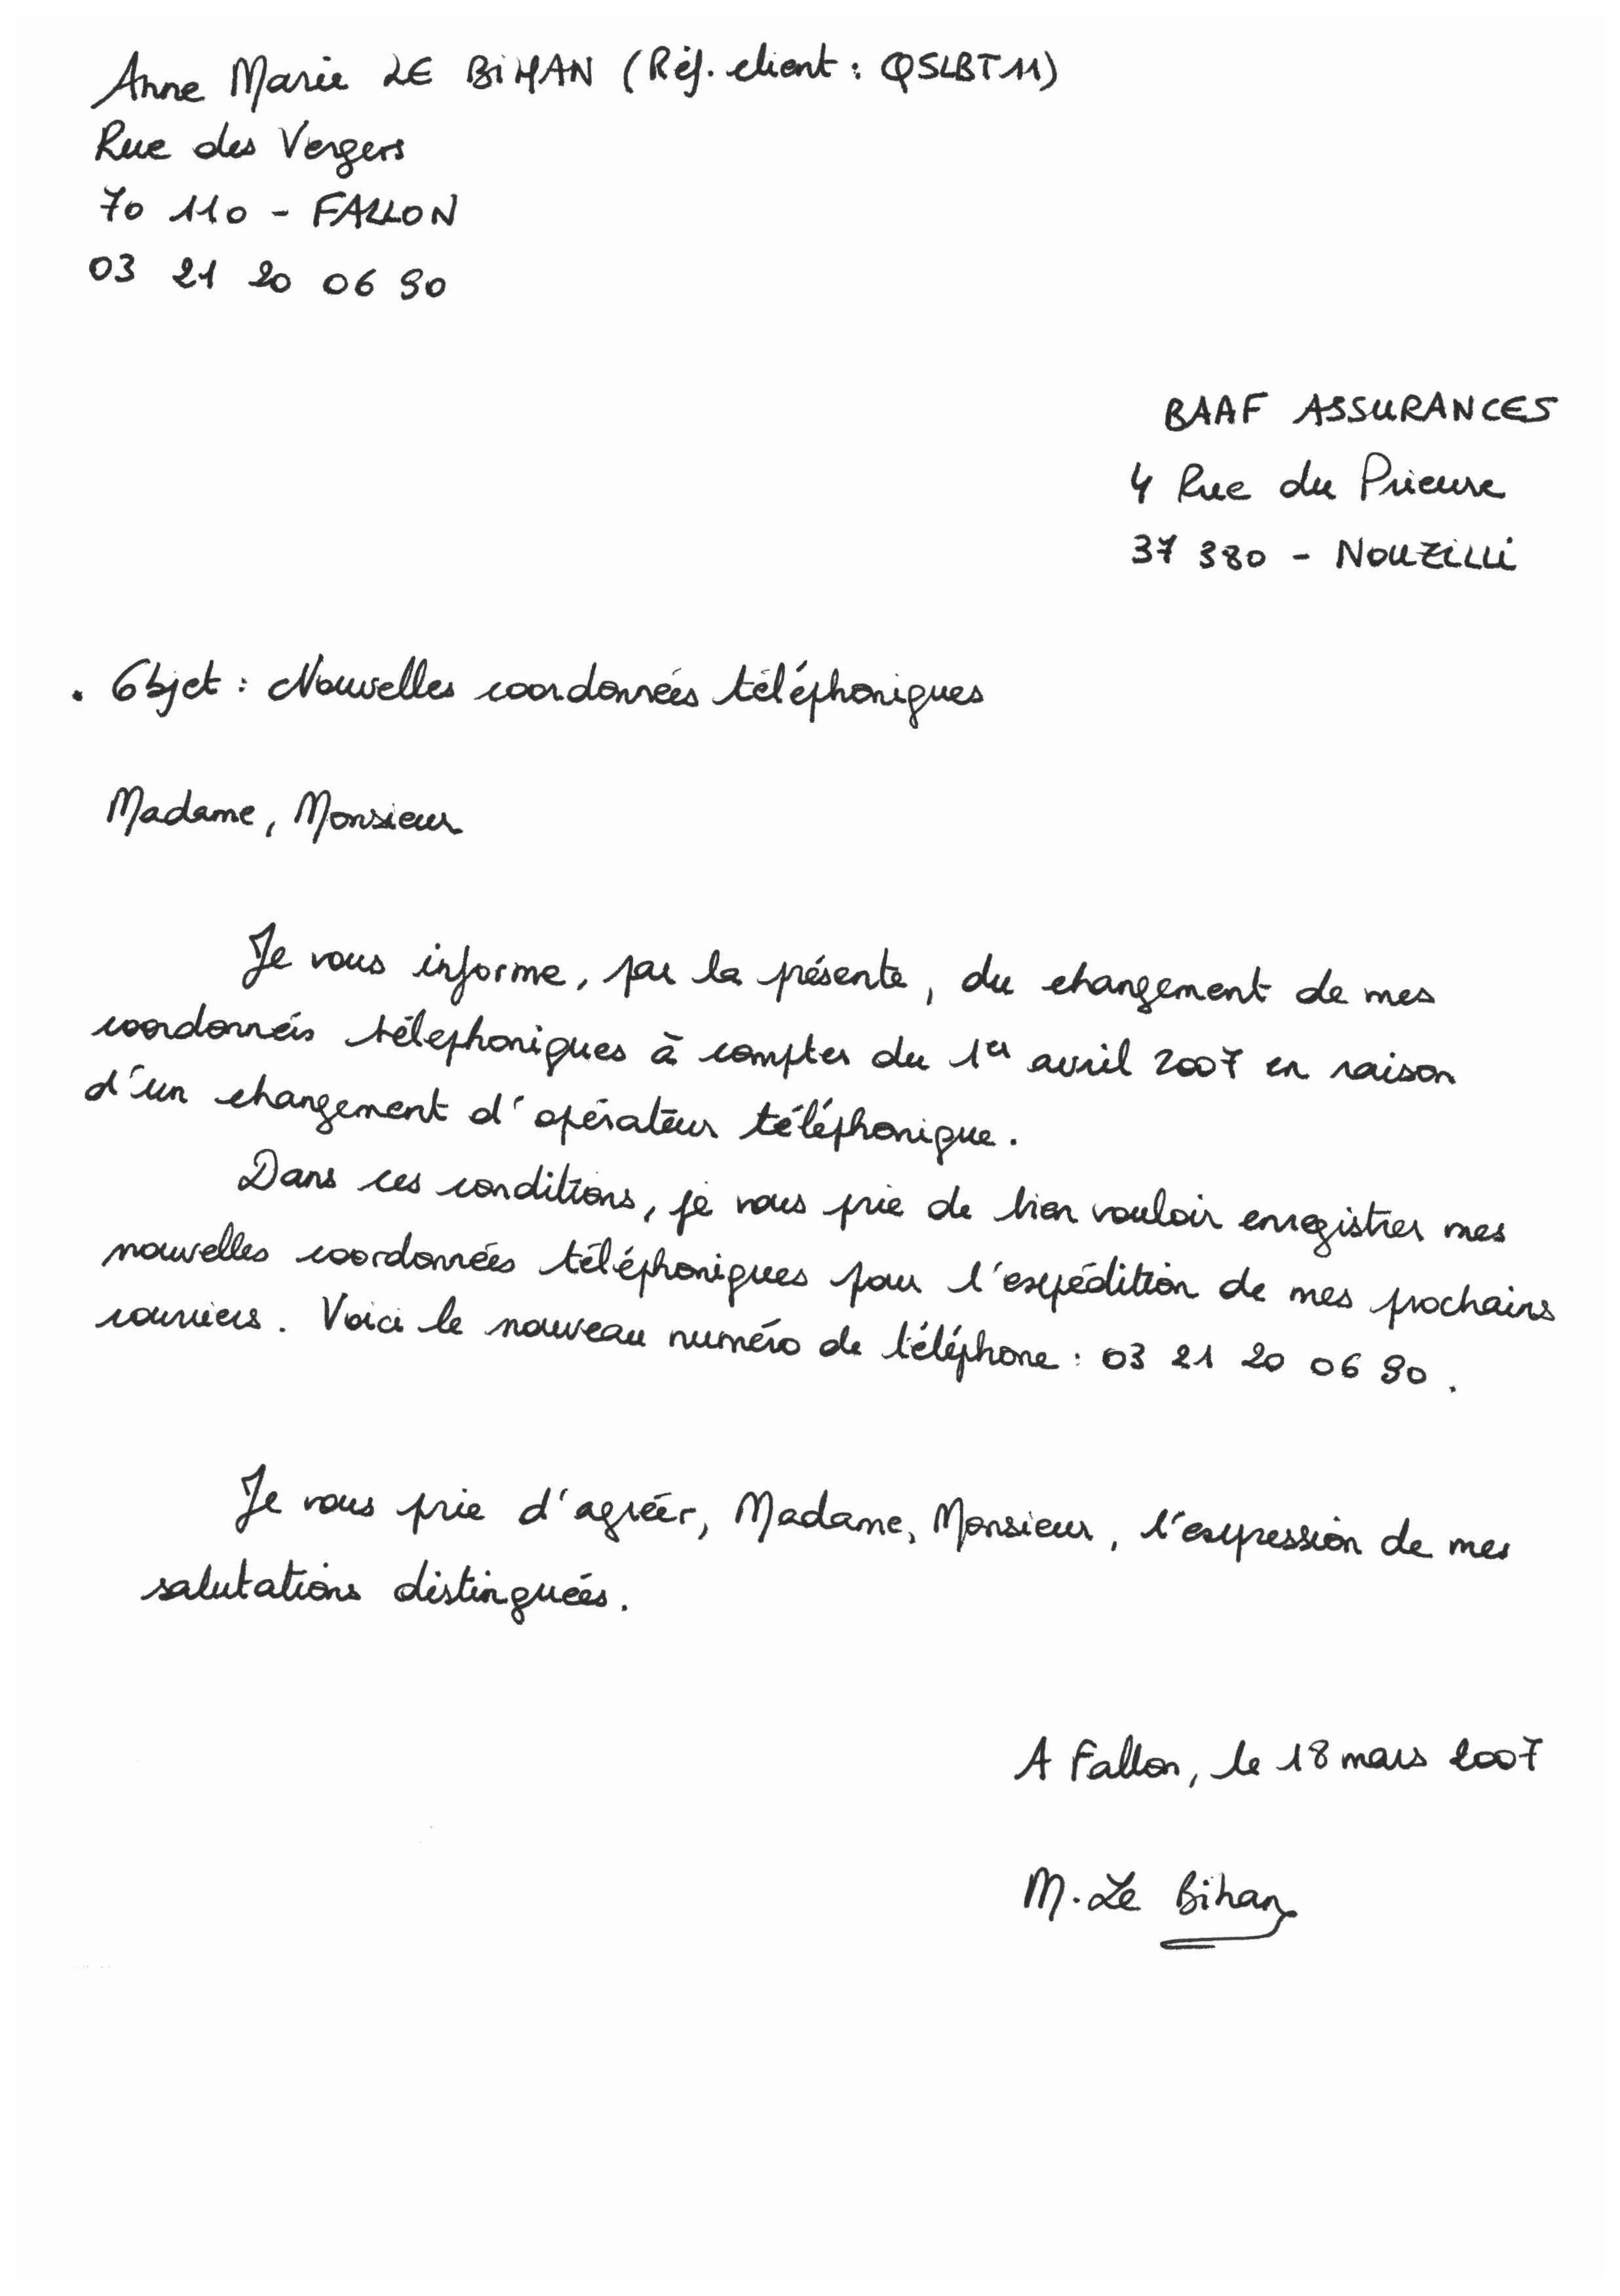 Anne Marie LE BIHAN (Réf. client : QSLBT11)
Rue des Vergers
70 110 - FALLON
03 21 20 06 90
BAAF ASSURANCES
4 Rue du Prieure
37 380 - NOUZILLI
. Objet : Nouvelles coordonnées téléphoniques
Madame, Monsieur
Je vous informe, par la présente, du changement de mes
coordonnées téléphoniques à compter du 1er avril 2007 en raison
d'un changement d'opérateur téléphonique.
Dans ces conditions, je vous prie de bien vouloir enregistrer mes
nouvelles coordonnées téléphoniques pour l'expédition de mes prochains
courriers. Voici le nouveau numéro de téléphone : 03 21 20 06 90.
Je vous prie d'agréer, Madame, Monsieur, l'expression de mes
salutations distinguées.
A Fallon, le 18 mars 2007
M. Le Bihan